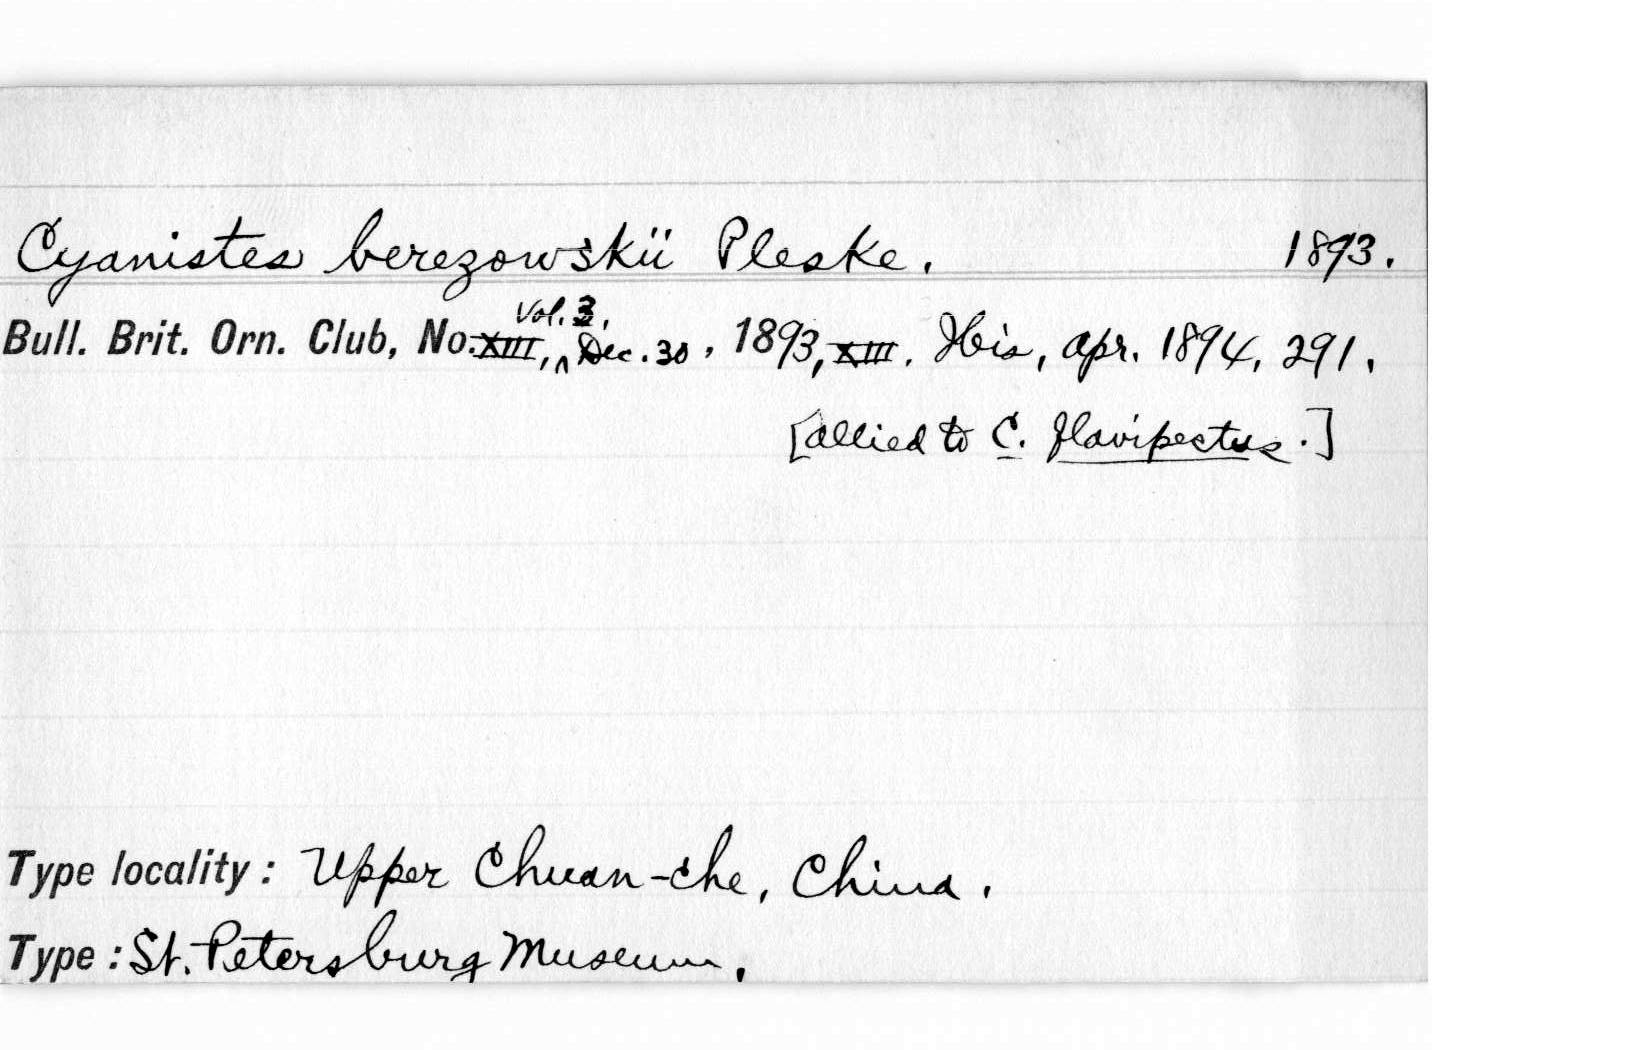 Cyanistes berezowskii Pleske. 1893.
Vol. 3,
Bull. Brit. Orn. Club, No. XIII, ^ Dec. 30, 1893, XIII. Ibis, Apr. 1894, 291.
[Allied to C. flavipectus.]
Type locality: Upper Chuan-che, China.
Type: St. Petersburg Museum.